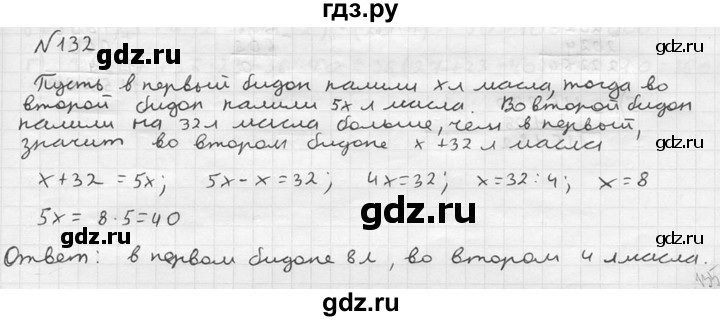 гдз.ру
№132
gdz.ru gdz.ru
Пусть в первый бидон налили х л масла, тогда во
второй бидон налили 5х л масла. Во второй бидон
налили на 32 л масла больше, чем в первый,
gdz.ru
значит во втором бидоне х + 32 л масла
х + 32 = 5х; 5х - х = 32; 4х = 32; х = 32 : 4; х = 8
gdz.ru
5х = 8 · 5 = 40
Ответ: в первом бидоне 8 л, во втором 4 л масла.
gdz.ru gdz.ru